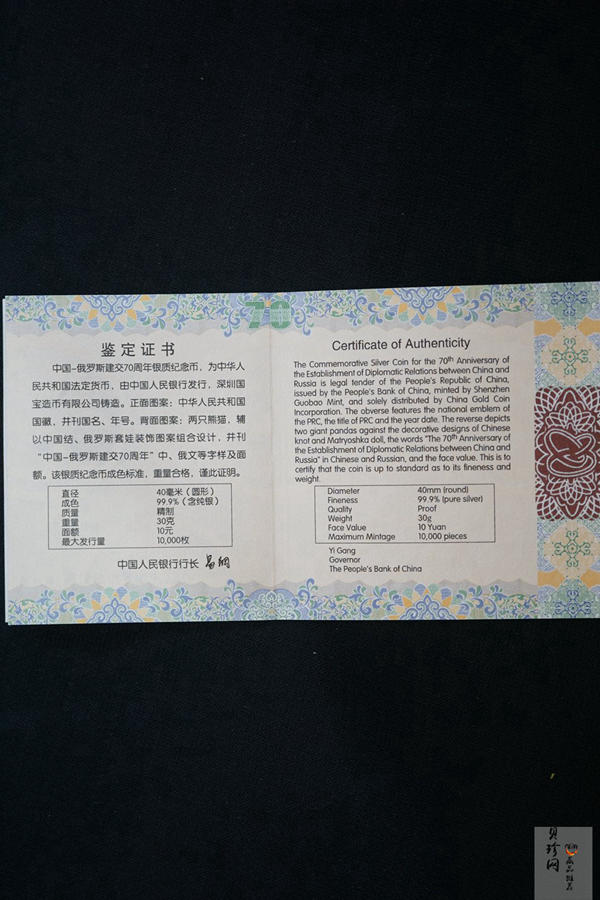 70
鉴定证书
中国-俄罗斯建交70周年银质纪念币，为中华人
民共和国法定货币，由中国人民银行发行，深圳国
宝造币有限公司铸造。正面图案：中华人民共和国
国徽，并刊国名、年号。背面图案：两只熊猫，辅
以中国结、俄罗斯套娃装饰图案组合设计，并刊
“中国-俄罗斯建交70周年”中、俄文等字样及面
额。该银质纪念币成色标准，重量合格，谨此证明。
直径 40毫米（圆形）
成色 99.9%（含纯银）
质量 精制
重量 30克
面额 10元
最大发行量 10,000枚
中国人民银行行长 易纲
Certificate of Authenticity
The Commemorative Silver Coin for the 70th Anniversary of
the Establishment of Diplomatic Relations between China and
Russia is legal tender of the People's Republic of China,
issued by the People's Bank of China, minted by Shenzhen
Guobao Mint, and solely distributed by China Gold Coin
Incorporation. The obverse features the national emblem of
the PRC, the title of PRC and the year date. The reverse depicts
two giant pandas against the decorative designs of Chinese
knot and Matryoshka doll, the words "The 70th Anniversary of
the Establishment of Diplomatic Relations between China and
Russia" in Chinese and Russian, and the face value. This is to
certify that the coin is up to standard as to its fineness and
weight.
Diameter 40mm (round)
Fineness 99.9% (pure silver)
Quality Proof
Weight 30g
Face Value 10 Yuan
Maximum Mintage 10,000 pieces
Yi Gang
Governor
The People's Bank of China
贝珍网